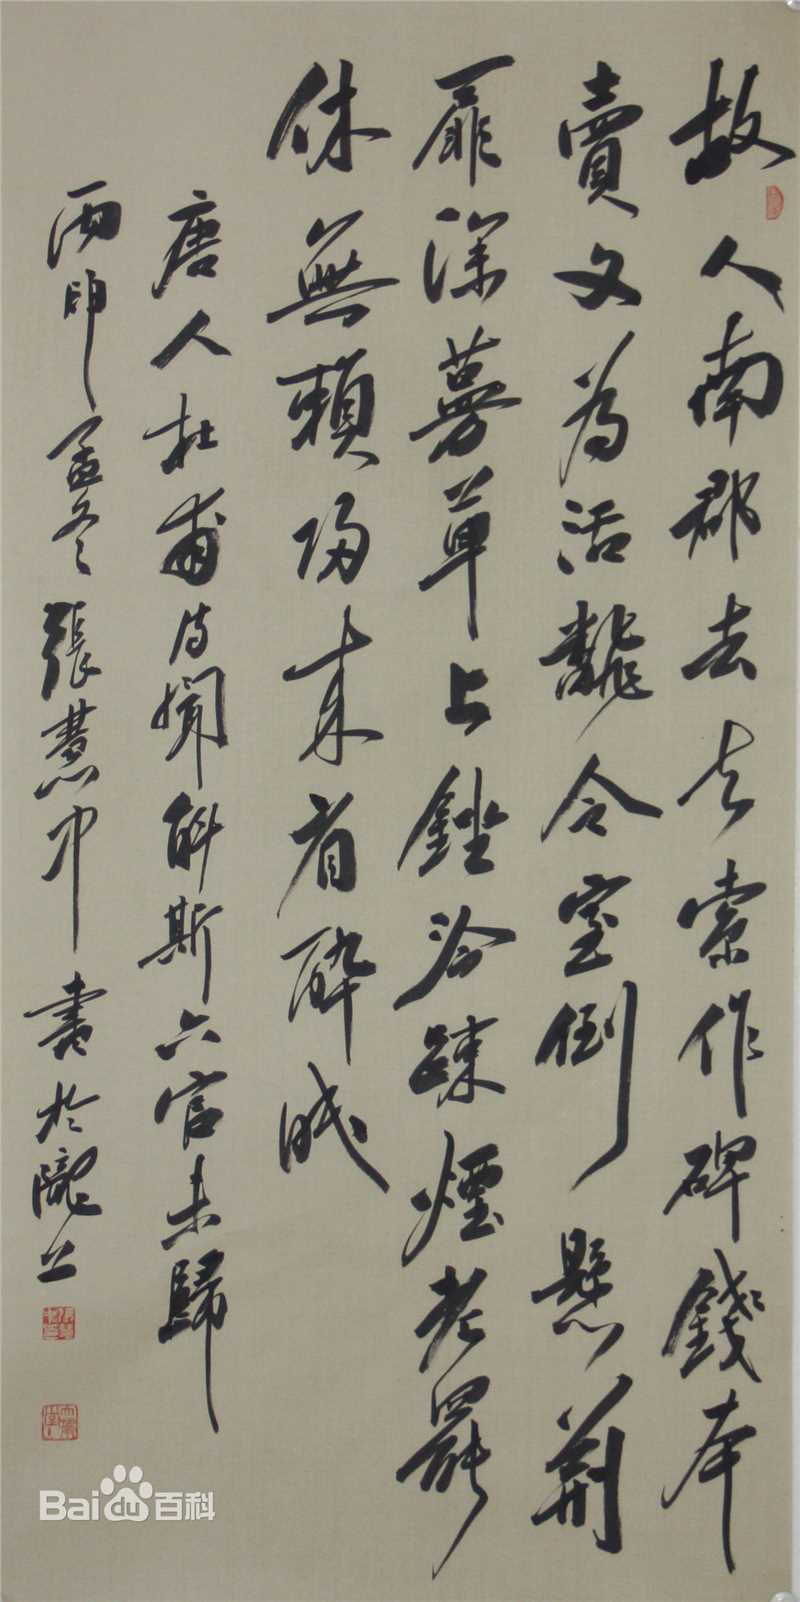 故人南郡去去索作碑錢本
賣文為活飜令室倒懸荆
扉深蔓草土銼冷踈煙老罷
休無賴歸来省醉眠
唐人杜甫诗聞斛斯六官未歸
丙申孟冬張慧中書於隴上
Bai du 百科